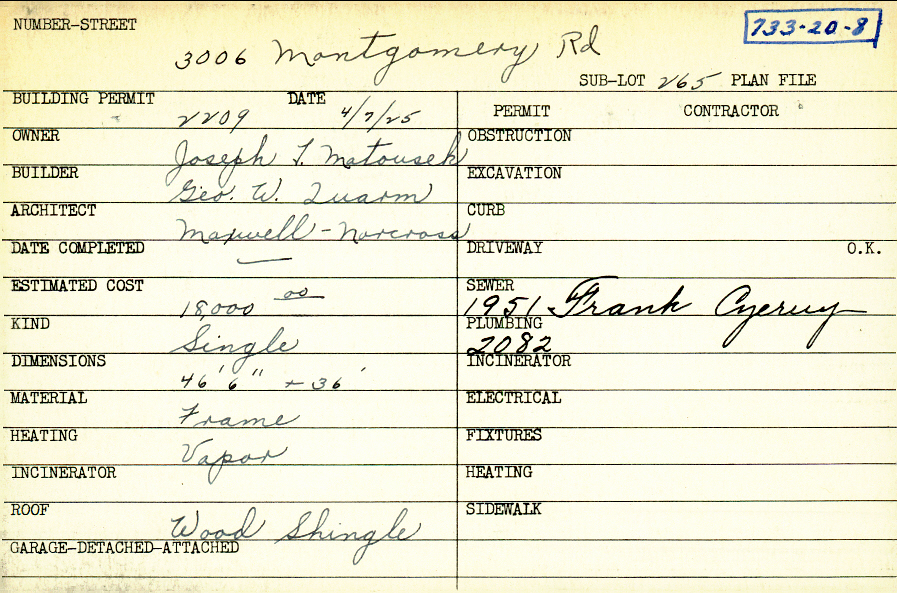 NUMBER-STREET
733-20-8
3006 Montgomery Rd
SUB-LOT 265 PLAN FILE
BUILDING PERMIT 2209 DATE 4/7/25
OWNER Joseph T. Matousek
BUILDER Geo. W. Quarm
ARCHITECT Maxwell-Norcross
DATE COMPLETED —
ESTIMATED COST 18,000 00
KIND Single
DIMENSIONS 46' 6" + 36'
MATERIAL Frame
HEATING Vapor
INCINERATOR
ROOF Wood Shingle
GARAGE-DETACHED-ATTACHED
PERMIT CONTRACTOR
OBSTRUCTION
EXCAVATION
CURB
DRIVEWAY O.K.
SEWER 1951 Frank
PLUMBING 2082
INCINERATOR
ELECTRICAL
FIXTURES
HEATING
SIDEWALK